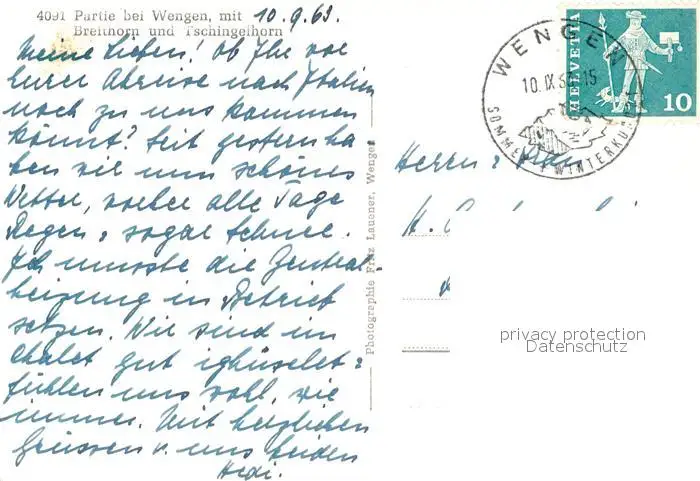 4091 Partie bei Wengen, mit
Breithorn und Tschingelhorn
10.9.63.
Meine Lieben! Ob Ihr vor
Eurer Abreise nach Italien
noch zu uns kommen
könnt? Seit gestern ha-
ben wir nun schönes
Wetter, vorher alle Tage
Regen & sogar Schnee.
Ich musste die Zentral-
heizung in Betrieb
setzen. Wir sind im
Chalet gut ighüselet &
fühlen uns wohl, wie
immer. Mit herzlichen
Grüssen v. uns beiden
Hedi.
Photographie Fritz Lauener, Wengen
WENGEN
10.IX.63-15
SOMMER WINTERKUR
HELVETIA
10
Herrn & Frau
H.
privacy protection
Datenschutz